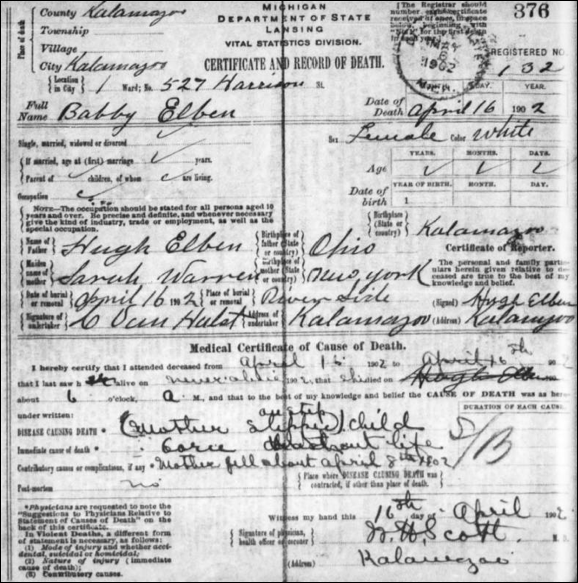 County Kalamazoo
MICHIGAN
[The Registrar should
376
Place of death
Township
DEPARTMENT OF STATE
Village
LANSING
VITAL STATISTICS DIVISION.
REGISTERED NO.
City Kalamazoo
CERTIFICATE AND RECORD OF DEATH.
132
{Location in City} 1 Ward; No. 527 Harrison St.
DAY. YEAR.
Full Name Babby Elben
Date of Death April 16 1902
Single, married, widowed or divorced
Sex Female Color White
{If married, age at (first) marriage years.
YEARS. MONTHS. DAYS.
{Parent of children, of whom are living.
Age
YEAR OF BIRTH. MONTH. DAY.
Occupation
Date of birth 1
NOTE—The occupation should be stated for all persons aged 10
years and over. Be precise and definite, and whenever necessary
give the kind of industry, trade or employment, as well as the
special occupation.
{Birthplace (State or country)} Kalamazoo
{Name of Father} Hugh Elben {Birthplace of father (State or country)} Ohio
Certificate of Reporter.
The personal and family partic-
ulars herein given relative to
deceased are true to the best of my
knowledge and belief.
{Maiden name of mother} Sarah Warren {Birthplace of mother (State or country)} New York
{Date of burial or removal} April 16 1902 {Place of burial or removal} River Side
(Signed) Hugh Elben
{Signature of undertaker} C Van Hulst {Address of undertaker} Kalamazoo
(Address) Kalamazoo
Medical Certificate of Cause of Death.
I hereby certify that I attended deceased from April 15 1902 to April 16th 1902
that I last saw h alive on never alive 190, that she died on
about 6 o'clock, A M., and that to the best of my knowledge and belief the CAUSE OF DEATH was as here-
under written:
DURATION OF EACH CAUSE.
DISEASE CAUSING DEATH (Mother slipped) child
Immediate cause of death life
Contributory causes or complications, if any Mother fell about April 8th 1902
{Place where DISEASE CAUSING DEATH was contracted, if other than place of death.
Post-mortem no
*Physicians are requested to note the
"Suggestions to Physicians Relative to
Statement of Causes of Death" on the
back of this certificate.
In Violent Deaths, a different form
of statement is necessary, as follows:
(1) Mode of injury and whether acci-
dental, suicidal or homicidal;
(2) Nature of injury (immediate
cause of death);
(3) Contributory causes.
Witness my hand this 16th day of April 1902
{Signature of physician, health officer or coroner} W H Scott M. D.
(Address) Kalamazoo